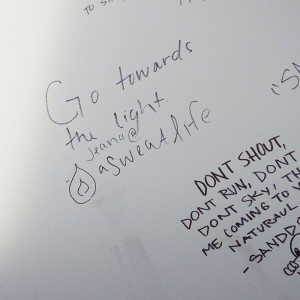 TO
Go towards
the light
jeana@
asweatlife
DONT SHOUT,
DONT RUN, DONT
DONT SKY, TH
ME COMING TO
NATURAUL
-SANDR